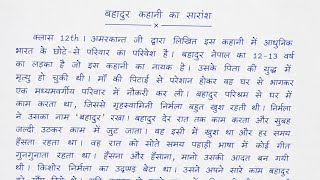 बहादुर कहानी का सारांश
क्लास 12th । अमरकान्त जी द्वारा लिखित इस कहानी में आधुनिक
भारत के छोटे-से परिवार का परिवेश है। बहादुर नेपाल का 12-13 वर्ष
का लड़का है जो इस कहानी का नायक है। उसके पिता की युद्ध में
मृत्यु हो चुकी थी। माँ की पिटाई से परेशान होकर वह घर से भागकर
एक मध्यमवर्गीय परिवार में नौकरी कर ली। बहादुर परिश्रम से घर में
काम करता था, जिससे गृहस्वामिनी निर्मला बहुत खुश रहती थी। निर्मला
ने उसका नाम 'बहादुर' रखा। बहादुर देर रात तक काम करता और सुबह
जल्दी उठकर काम में जुट जाता। वह इसी में खुश था और हर समय
हँसता रहता था। वह रात को सोते समय पहाड़ी भाषा में कोई गीत
गुनगुनाता रहता था। हँसना और हँसाना, मानो उसकी आदत बन गयी
थी। किशोर निर्मला का उद्दण्ड बेटा था। उसने अपने सारे काम बहादुर